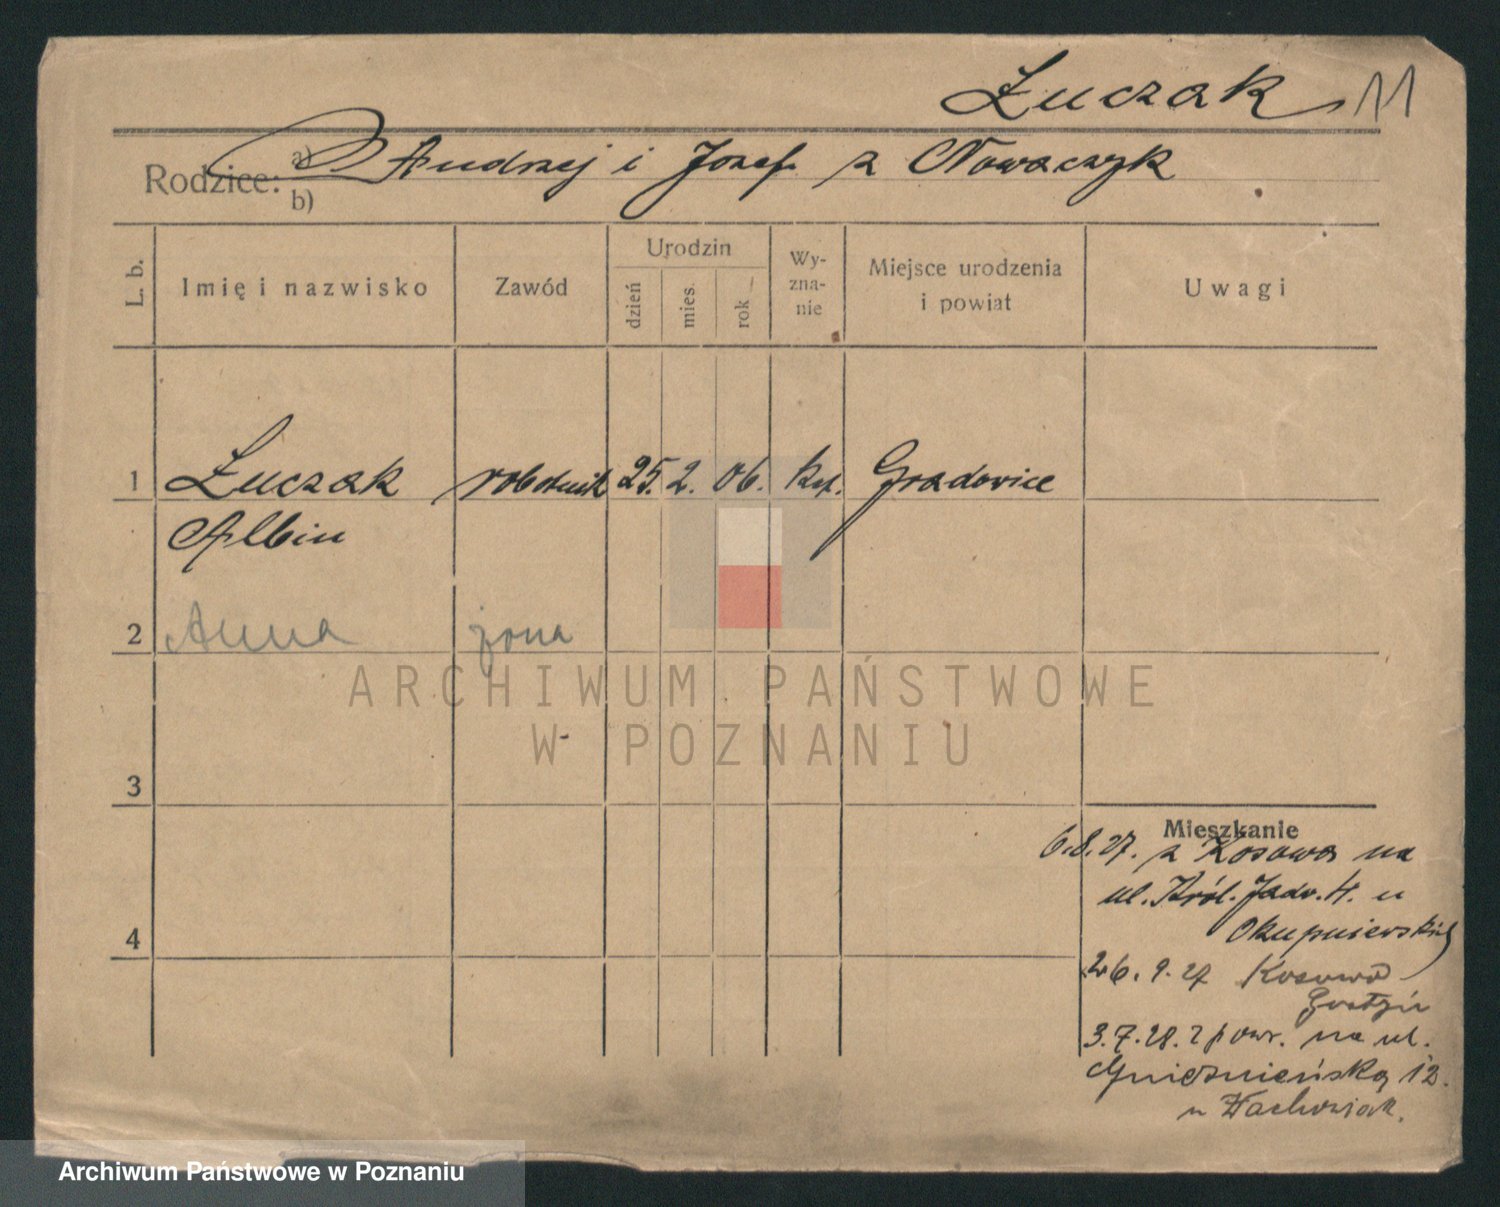 Łuczak 11
Rodzice: a) Andrzej i Józef. z Nowaczyk
b)
L. b. Imię i nazwisko Zawód Urodzin dzień mies. rok Wyznanie Miejsce urodzenia i powiat Uwagi
1 Łuczak robotnik 25. 2. 06. kat. Gradowice
Albin
2 Anna żona
ARCHIWUM PAŃSTWOWE
W POZNANIU
3
Mieszkanie
6.8.27. z Kosowa na
ul. Król. Jadw. 4. u
Okupniewskich
4
26. 9. 27 Kosowo
Gostyń
3.7.28. z powr. na ul.
Gnieźnieńską 12.
u Wachowiak.
Archiwum Państwowe w Poznaniu